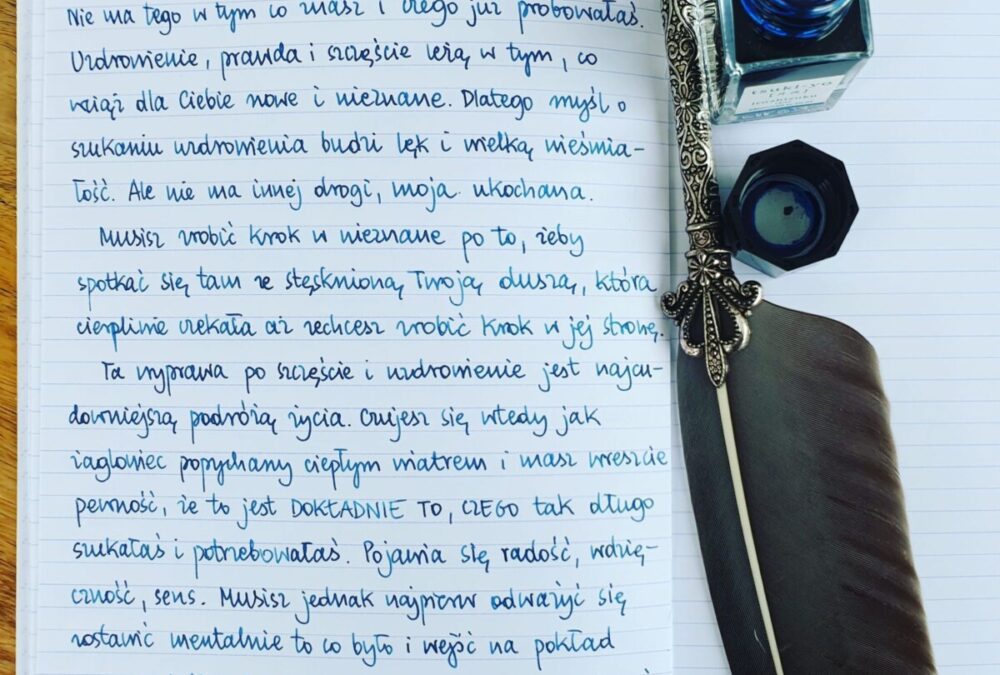 Nie ma tego w tym co masz i czego już próbowałaś.
Uzdrowienie, prawda i szczęście leżą w tym, co
wciąż dla Ciebie nowe i nieznane. Dlatego myśl o
szukaniu uzdrowienia budzi lęk i wielką nieśmia-
łość. Ale nie ma innej drogi, moja ukochana.
Musisz zrobić krok w nieznane po to, żeby
spotkać się tam ze stęsknioną Twoją duszą, która
cierpliwie czekała aż zechcesz zrobić krok w jej stronę.
Ta wyprawa po szczęście i uzdrowienie jest najcu-
downiejszą podróżą życia. Czujesz się wtedy jak
żaglowiec popychany ciepłym wiatrem i masz wreszcie
pewność, że to jest DOKŁADNIE TO, CZEGO tak długo
szukałaś i potrzebowałaś. Pojawia się radość, wdzię-
czność, sens. Musisz jednak najpierw odważyć się
zostawić mentalnie to co było i wejść na pokład
tsuki-yo